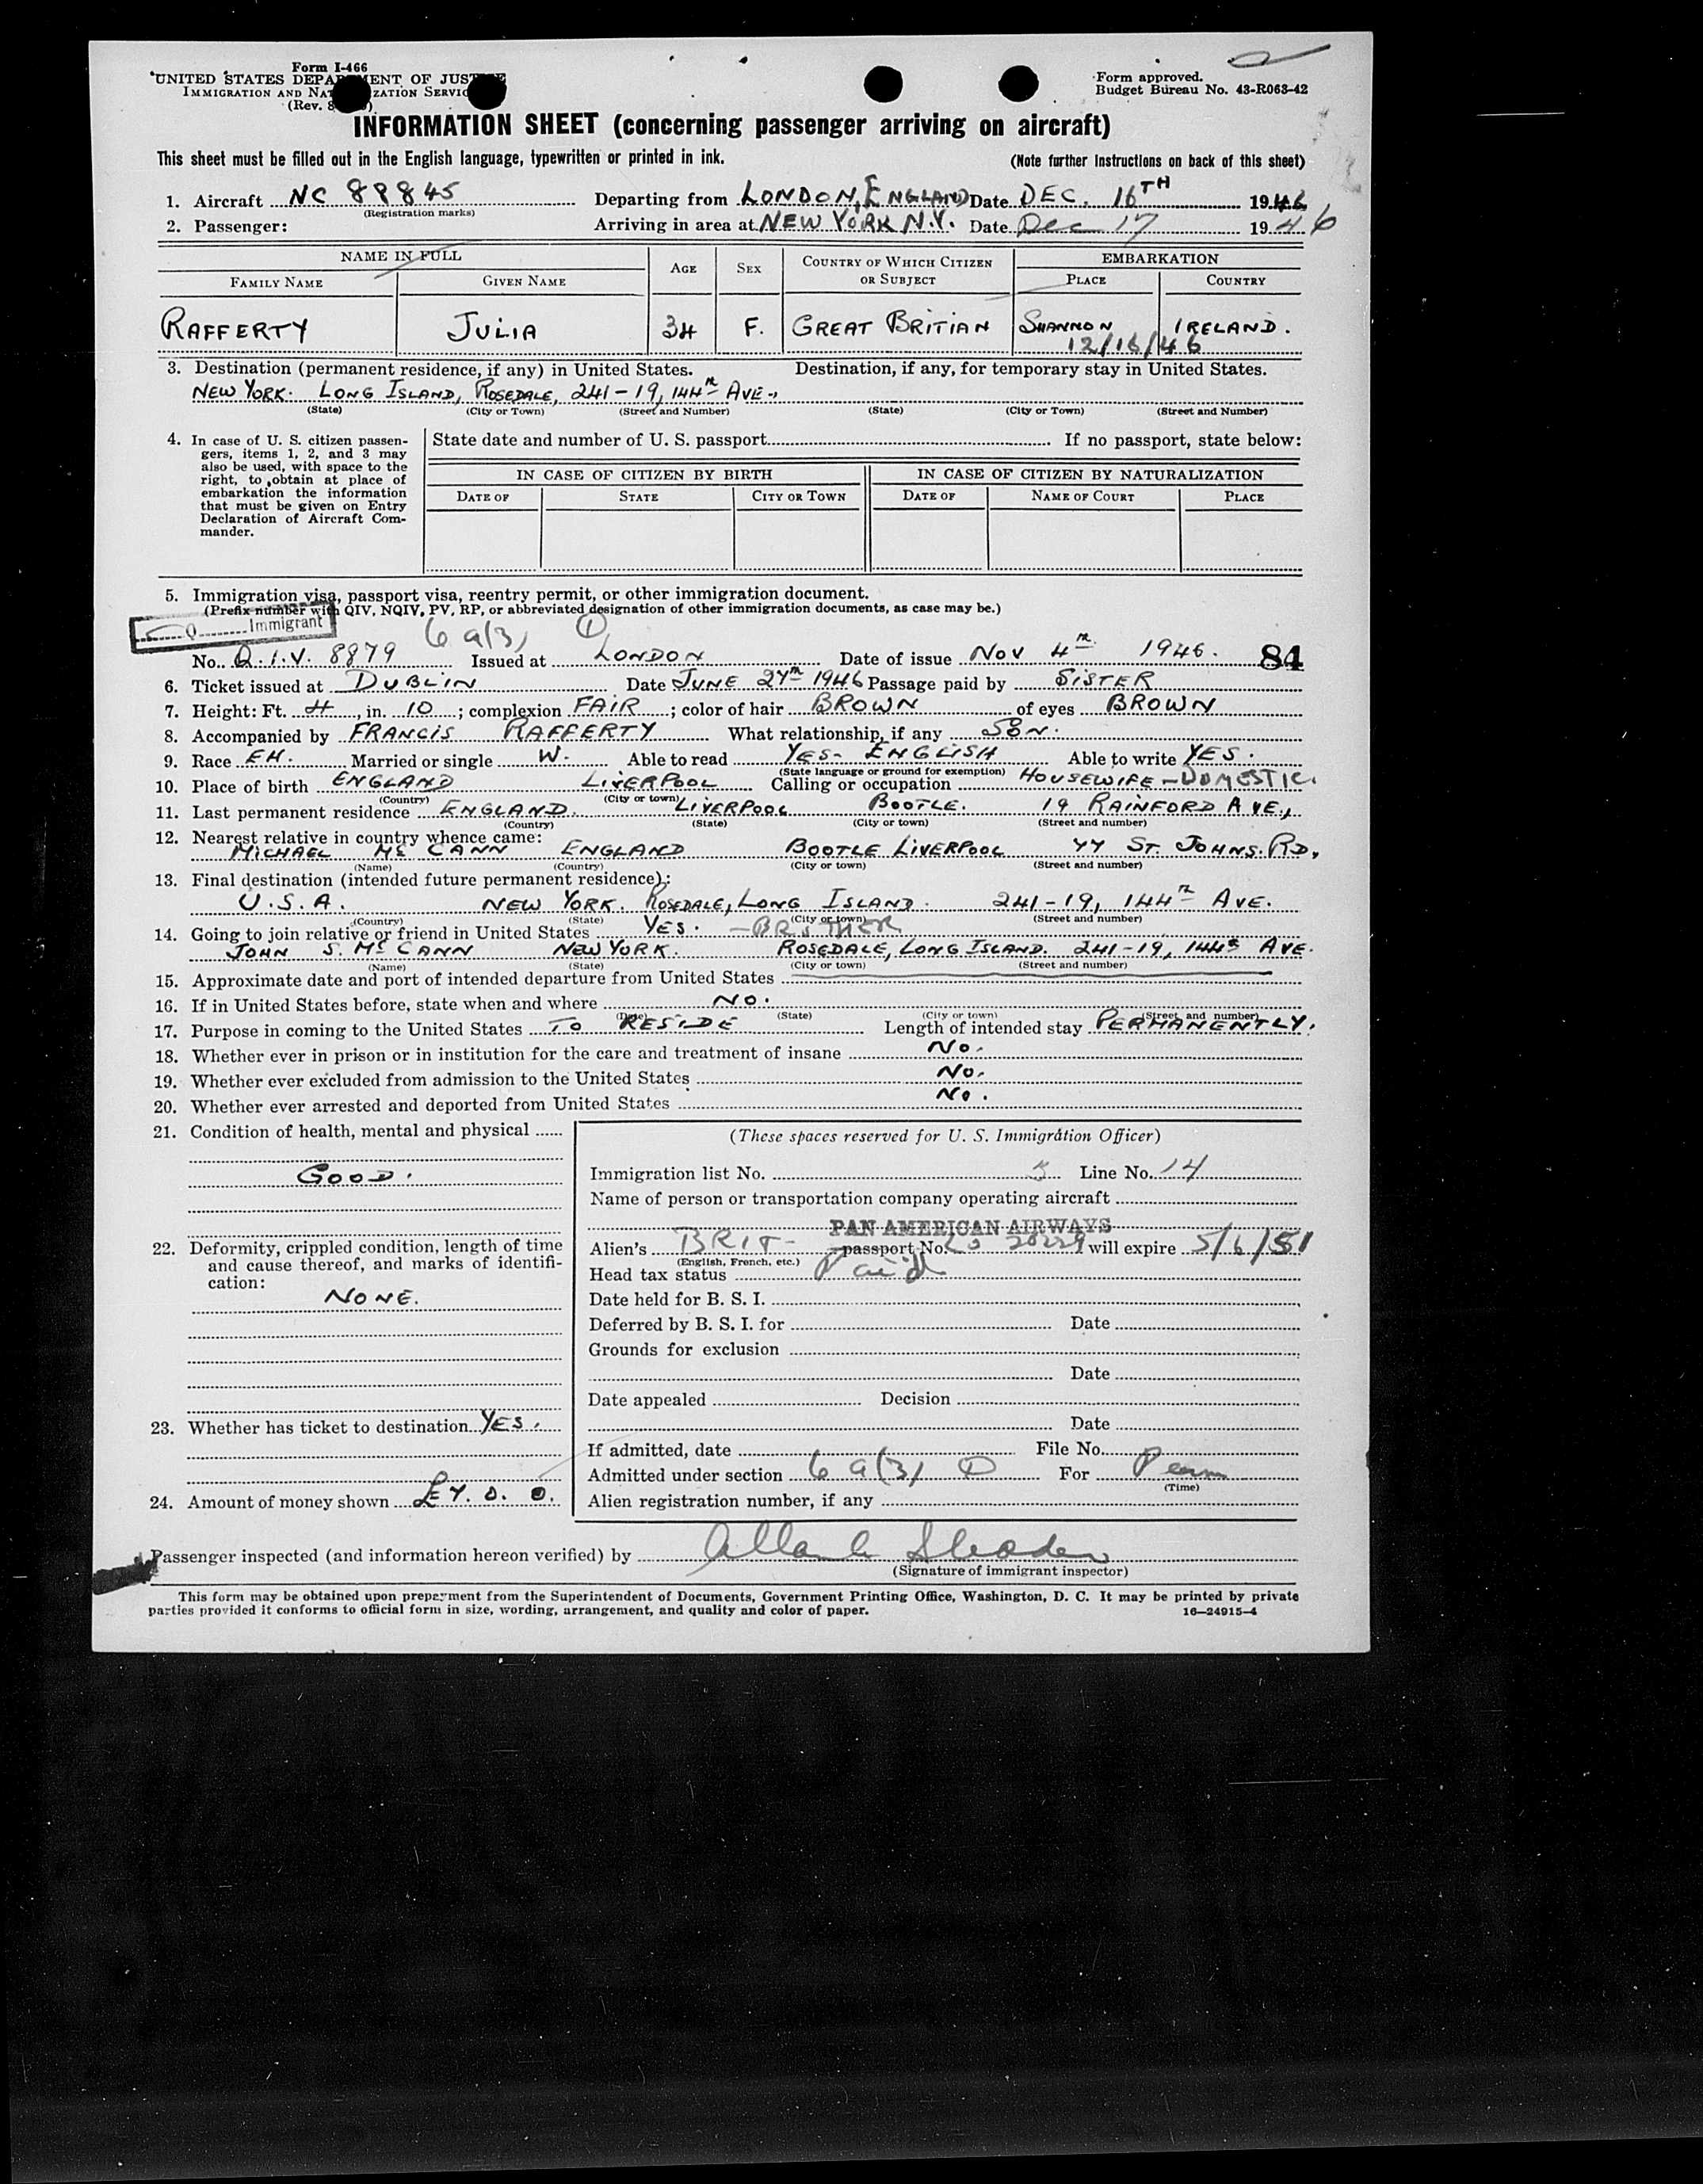 Form I-466
UNITED STATES DEPARTMENT OF JUSTICE
IMMIGRATION AND NATURALIZATION SERVICE
(Rev. 8
Form approved.
Budget Bureau No. 43-R063-42
INFORMATION SHEET (concerning passenger arriving on aircraft)
This sheet must be filled out in the English language, typewritten or printed in ink. (Note further instructions on back of this sheet)
1. Aircraft NC 88845 Departing from LONDON, ENGLAND Date DEC. 16TH 1946
(Registration marks)
2. Passenger: Arriving in area at NEW YORK N.Y. Date Dec 17 1946
NAME IN FULL AGE SEX COUNTRY OF WHICH CITIZEN OR SUBJECT EMBARKATION
FAMILY NAME GIVEN NAME PLACE COUNTRY
RAFFERTY JULIA 34 F. GREAT BRITIAN SHANNON IRELAND.
12/16/46
3. Destination (permanent residence, if any) in United States. Destination, if any, for temporary stay in United States.
NEW YORK. LONG ISLAND, ROSEDALE, 241-19, 144TH AVE.,
(State) (City or Town) (Street and Number) (State) (City or Town) (Street and Number)
4. In case of U. S. citizen passengers, items 1, 2, and 3 may also be used, with space to the right, to obtain at place of embarkation the information that must be given on Entry Declaration of Aircraft Commander.
State date and number of U. S. passport If no passport, state below:
IN CASE OF CITIZEN BY BIRTH IN CASE OF CITIZEN BY NATURALIZATION
DATE OF STATE CITY OR TOWN DATE OF NAME OF COURT PLACE
5. Immigration visa, passport visa, reentry permit, or other immigration document.
(Prefix number with QIV, NQIV, PV, RP, or abbreviated designation of other immigration documents, as case may be.)
Q Immigrant
6 a(3) 1
No. Q.I.V. 8879 Issued at LONDON Date of issue NOV 4TH 1946. 84
6. Ticket issued at DUBLIN Date JUNE 27TH 1946 Passage paid by SISTER
7. Height: Ft. 4, in. 10; complexion FAIR; color of hair BROWN of eyes BROWN
8. Accompanied by FRANCIS RAFFERTY What relationship, if any SON.
9. Race EH. Married or single W. Able to read YES- ENGLISH Able to write YES.
(State language or ground for exemption)
10. Place of birth ENGLAND LIVERPOOL Calling or occupation HOUSEWIFE-DOMESTIC.
(Country) (City or town)
11. Last permanent residence ENGLAND. LIVERPOOL BOOTLE. 19 RAINFORD AVE.,
(Country) (State) (City or town) (Street and number)
12. Nearest relative in country whence came:
MICHAEL Mc CANN ENGLAND BOOTLE LIVERPOOL 77 ST. JOHNS. RD.
(Name) (Country) (City or town) (Street and number)
13. Final destination (intended future permanent residence):
U.S.A. NEW YORK. ROSEDALE, LONG ISLAND. 241-19, 144TH AVE.
(Country) (State) (City or town) (Street and number)
14. Going to join relative or friend in United States YES. -BROTHER
JOHN S. Mc CANN NEW YORK. ROSEDALE, LONG ISLAND. 241-19, 144TH AVE.
(Name) (State) (City or town) (Street and number)
15. Approximate date and port of intended departure from United States
16. If in United States before, state when and where NO.
(Date) (State) (City or town) (Street and number)
17. Purpose in coming to the United States TO RESIDE Length of intended stay PERMANENTLY.
18. Whether ever in prison or in institution for the care and treatment of insane NO.
19. Whether ever excluded from admission to the United States NO.
20. Whether ever arrested and deported from United States NO.
21. Condition of health, mental and physical
GOOD.
22. Deformity, crippled condition, length of time and cause thereof, and marks of identification:
NONE.
23. Whether has ticket to destination YES.
24. Amount of money shown £7. 0. 0.
(These spaces reserved for U. S. Immigration Officer)
Immigration list No. 5 Line No. 14
Name of person or transportation company operating aircraft
PAN AMERICAN AIRWAYS
Alien's BRIT- passport No. 20229 will expire 5/6/51
(English, French, etc.)
Head tax status Paid
Date held for B. S. I.
Deferred by B. S. I. for Date
Grounds for exclusion
Date
Date appealed Decision
Date
If admitted, date File No.
Admitted under section 6 a(3) 1 For Perm
(Time)
Alien registration number, if any
Passenger inspected (and information hereon verified) by
(Signature of immigrant inspector)
This form may be obtained upon prepayment from the Superintendent of Documents, Government Printing Office, Washington, D. C. It may be printed by private
parties provided it conforms to official form in size, wording, arrangement, and quality and color of paper. 16—24915-4